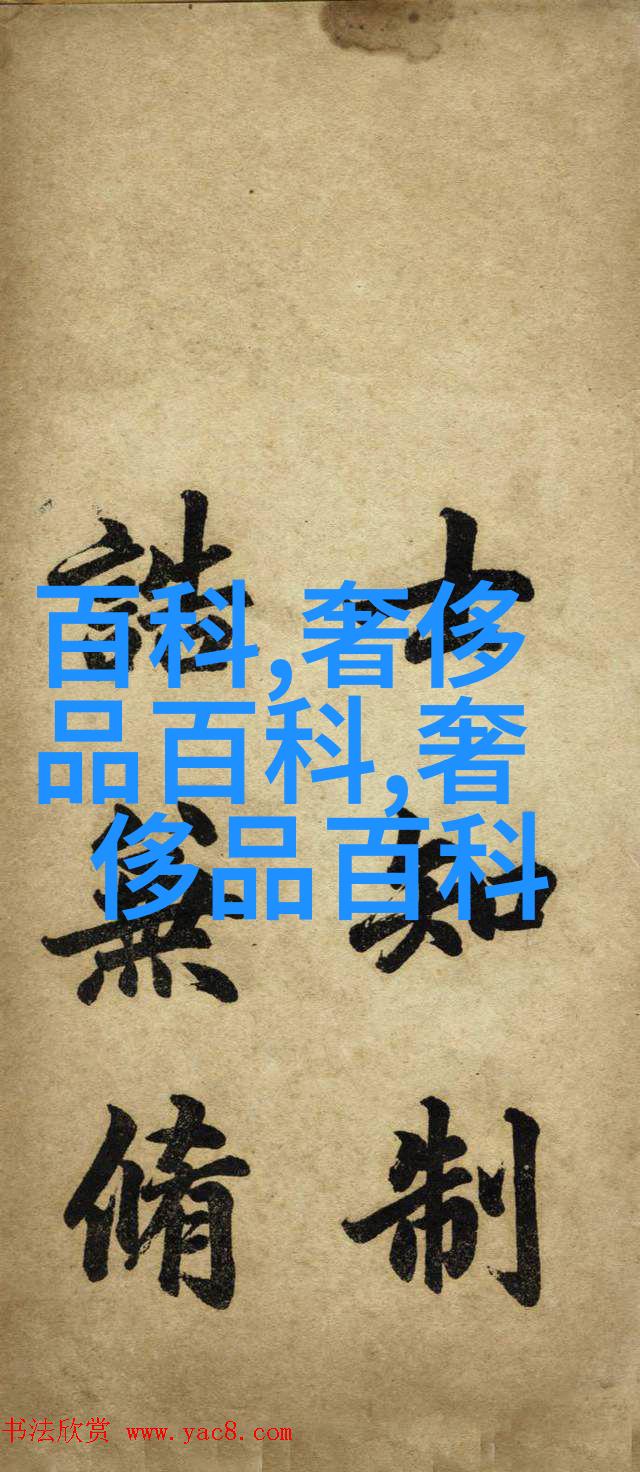 百科,奢侈
品百科,奢
侈品百科
士知制
誥兼脩
书法欣赏 www.yac8.com